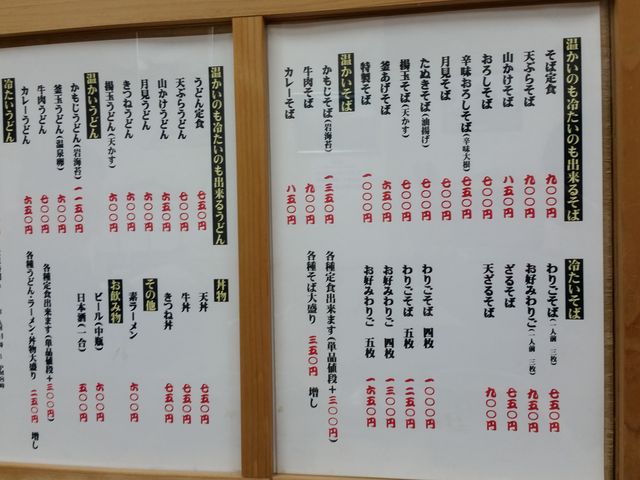 温かいのも冷たいのも出来るそば
そば定食 九〇〇円
天ぷらそば 九〇〇円
山かけそば 八五〇円
おろしそば 七五〇円
辛味おろしそば(辛味大根) 九〇〇円
月見そば 七〇〇円
たぬきそば(油揚げ) 七〇〇円
揚玉そば(天かす) 七〇〇円
釜あげそば 六五〇円
特製そば 一〇〇〇円
温かいそば
かもじそば(岩海苔) 一三五〇円
牛肉そば 九〇〇円
カレーそば 八五〇円
冷たいそば
わりごそば(一人前 三枚) 七五〇円
お好みわりご(一人前 三枚) 九五〇円
ざるそば 七五〇円
天ざるそば 九〇〇円
わりごそば 四枚 一〇〇〇円
わりごそば 五枚 一二五〇円
お好みわりご 四枚 一三〇〇円
お好みわりご 五枚 一六五〇円
各種定食出来ます(単品値段+三〇〇円)
各種そば大盛り 三五〇円 増し
温かいのも冷たいのも出来るうどん
うどん定食 七五〇円
天ぷらうどん 七五〇円
山かけうどん 七〇〇円
月見うどん 六〇〇円
きつねうどん 六〇〇円
揚玉うどん(天かす) 六〇〇円
温かいうどん
かもじうどん(岩海苔) 一一五〇円
釜玉うどん(温泉卵) 六〇〇円
牛肉うどん 七〇〇円
カレーうどん 六五〇円
冷たいうどん
丼物
天丼 七五〇円
牛丼 七五〇円
きつね丼 七五〇円
その他
素ラーメン 六〇〇円
お飲み物
ビール(中瓶) 六〇〇円
日本酒(一合) 五〇〇円
各種定食出来ます(単品値段+三〇〇円)
各種うどん・ラーメン・丼物大盛り 二五〇円 増し